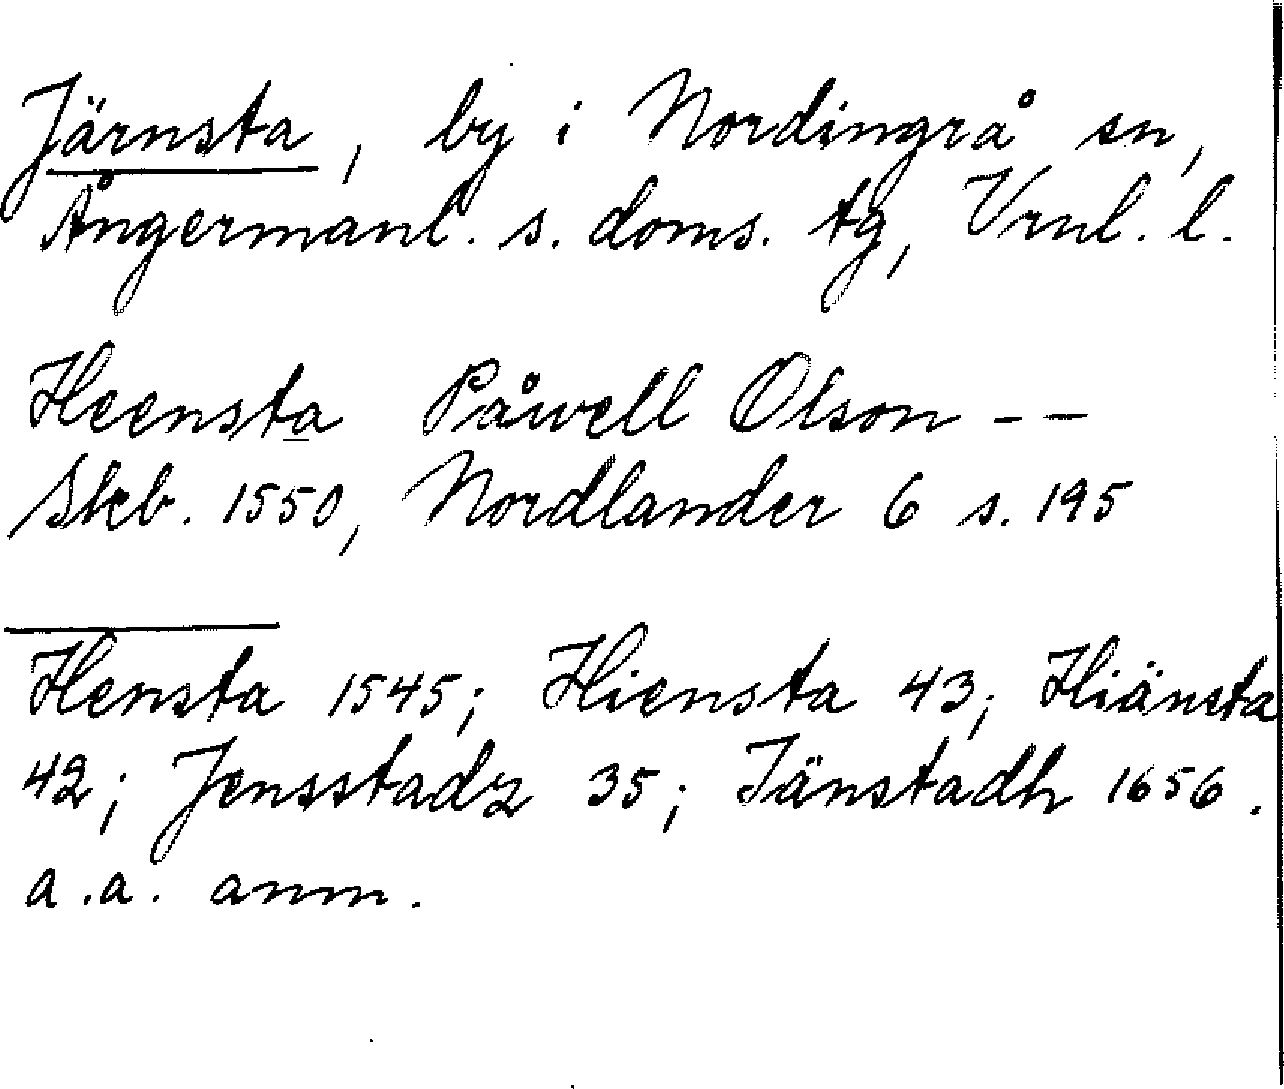 Järnsta, by i Nordingrå sn,
Ångermanl. s. doms. tg, Vrnl. l.
Heensta Påwell Olson - -
Skb. 1550, Nordlander 6 s. 195
Hensta 1545; Hiensta 43; Hiänsta
42; Jensstadz 35; Jänstadh 1656.
a.a. anm.